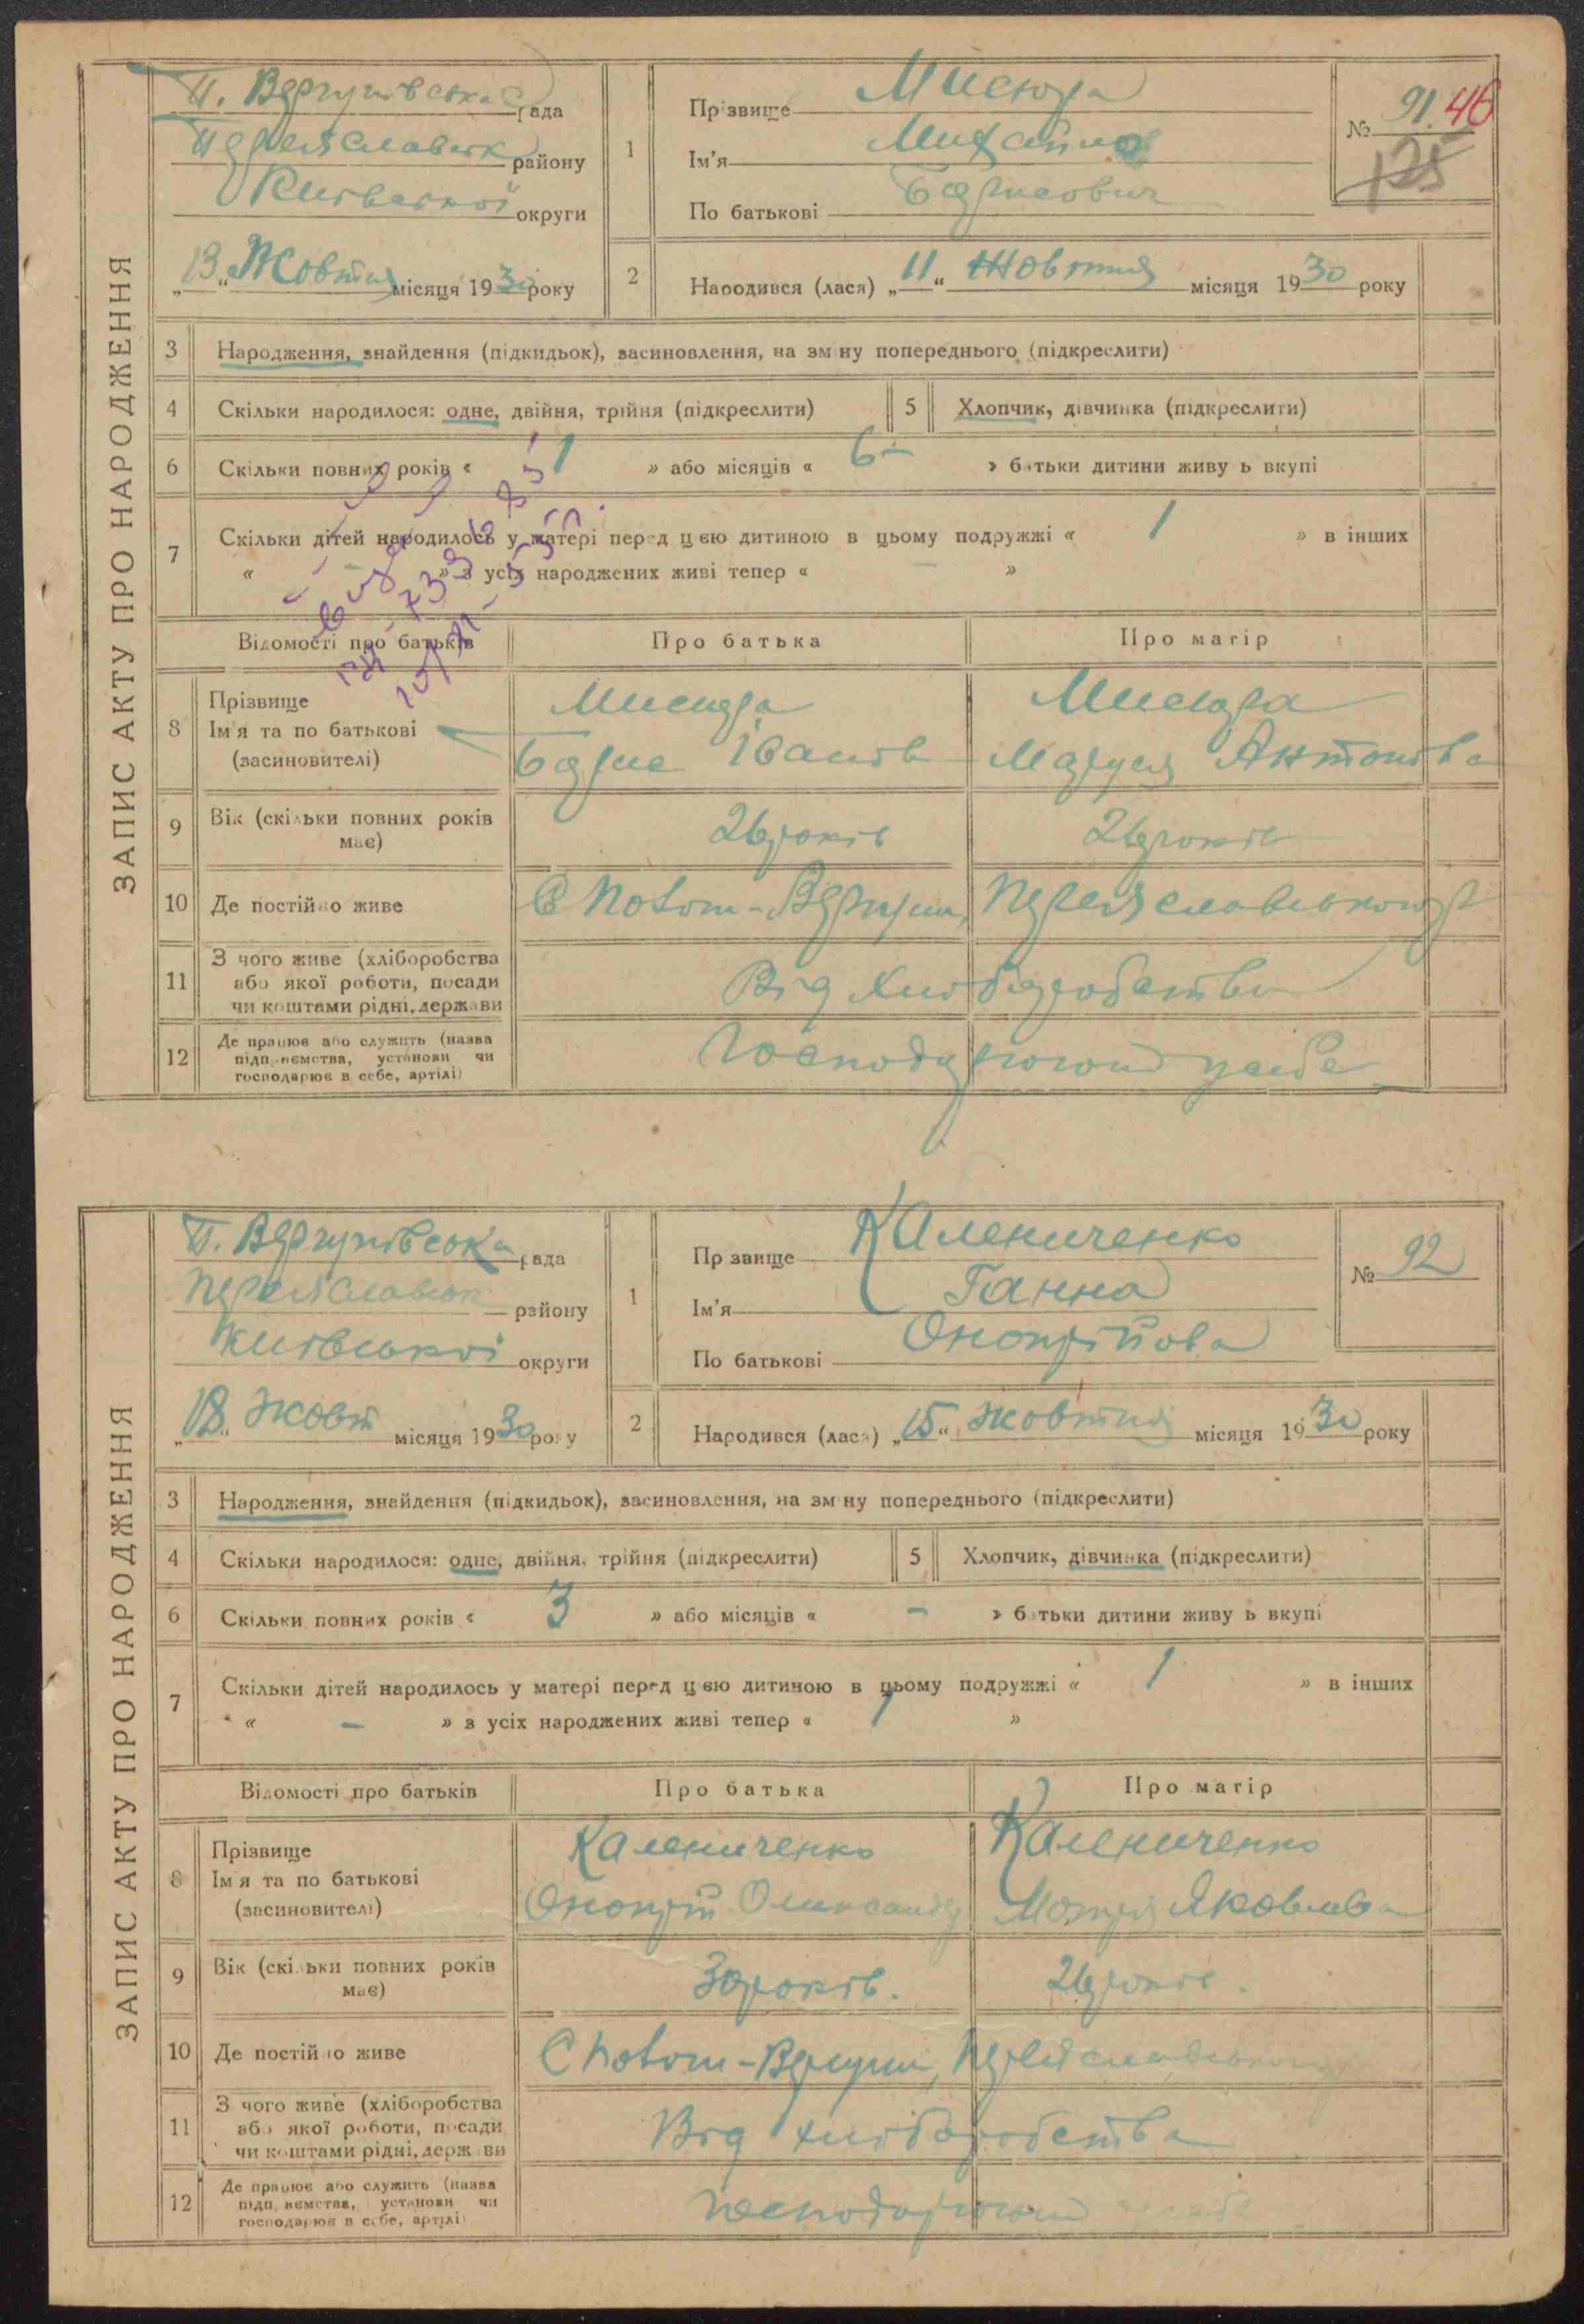 ЗАПИС АКТУ ПРО НАРОДЖЕННЯ
П. Вергунівська рада
Переяславськ району
Київської округи
„13“ Жовтня місяця 1930 року
1
Прізвище Мисюра
Ім'я Михайло
По батькові Борисович
№ 91. 46
125
2
Народився (лася) „11“ Жовтня місяця 1930 року
3 Народження, знайдення (підкидьок), засиновлення, на зміну попереднього (підкреслити)
4 Скільки народилося: одне, двійня, трійня (підкреслити) 5 Хлопчик, дівчинка (підкреслити)
6 Скільки повних років « 1 » або місяців « 6 – » батьки дитини живуть вкупі
7 Скільки дітей народилось у матері перед цією дитиною в цьому подружжі « 1 » в інших
« – » з усіх народжених живі тепер « – »
Відомості про батьків Про батька Про матір
8 Прізвище Мисюра Мисюра
Ім'я та по батькові Борис Іванів Маруся Антонівна
(засиновителі)
9 Вік (скільки повних років має) 26 років 26 років
10 Де постійно живе С Попот-Вергуни, Переяславського р
11 З чого живе (хліборобства або якої роботи, посади чи коштами рідні, держави Від хліборобства
12 Де працює або служить (назва підприємства, установи чи господарює в себе, артілі) Господарюють у себе
ЗАПИС АКТУ ПРО НАРОДЖЕННЯ
П. Вергунівська рада
Переяславськ району
Київської округи
„18“ жовт місяця 1930 року
1
Прізвище Калениченко
Ім'я Ганна
По батькові Онопрійова
№ 92
2
Народився (лася) „15“ жовтня місяця 1930 року
3 Народження, знайдення (підкидьок), засиновлення, на зміну попереднього (підкреслити)
4 Скільки народилося: одне, двійня, трійня (підкреслити) 5 Хлопчик, дівчинка (підкреслити)
6 Скільки повних років « 3 » або місяців « – » батьки дитини живуть вкупі
7 Скільки дітей народилось у матері перед цією дитиною в цьому подружжі « 1 » в інших
« – » з усіх народжених живі тепер « 1 »
Відомості про батьків Про батька Про матір
8 Прізвище Калениченко Калениченко
Ім'я та по батькові Онопрій Олександр Мотря Яковлівна
(засиновителі)
9 Вік (скільки повних років має) 30 років. 26 років.
10 Де постійно живе С Попот-Вергуни, Переяславського
11 З чого живе (хліборобства або якої роботи, посади чи коштами рідні, держави Від хліборобства
12 Де працює або служить (назва підприємства, установи чи господарює в себе, артілі) Господарюють у себе